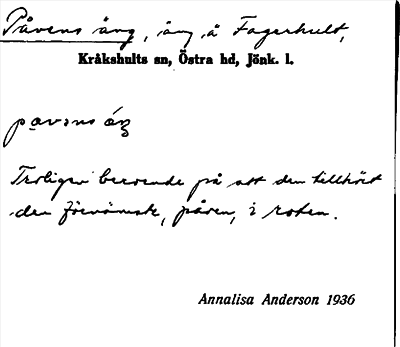 Påvens äng, äng å Fagerhult,
Kråkshults sn, Östra hd, Jönk. l.
pavəns áŋ
Troligen beroende på att den tillhört
den förnämste, påven, i roten.
Annalisa Anderson 1936